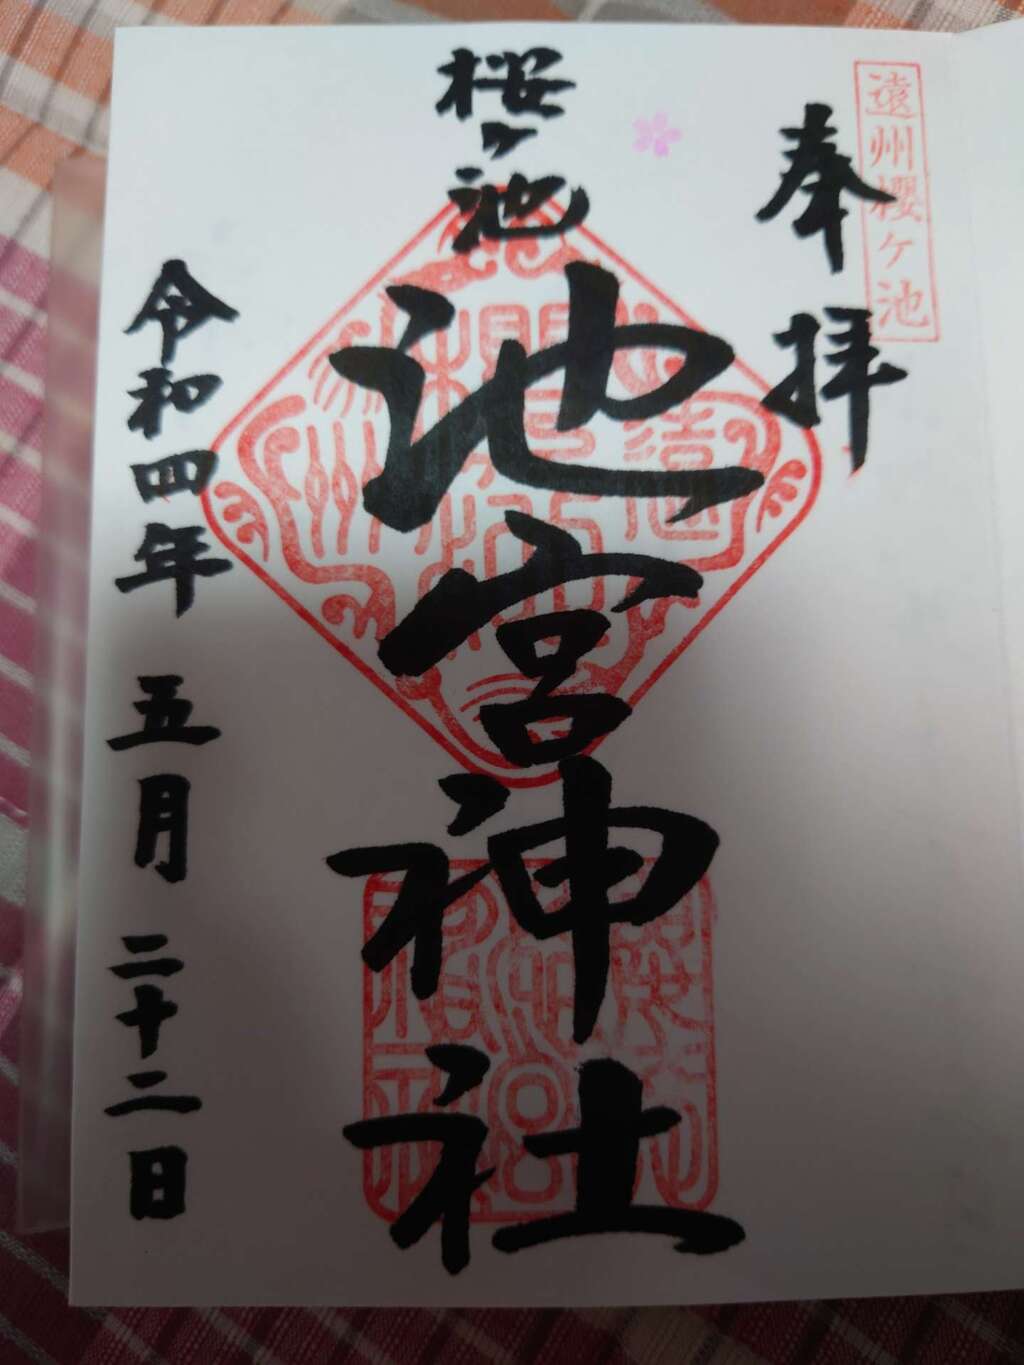 遠州櫻ヶ池
奉拝
桜ヶ池
池宮神社
令和四年五月二十二日